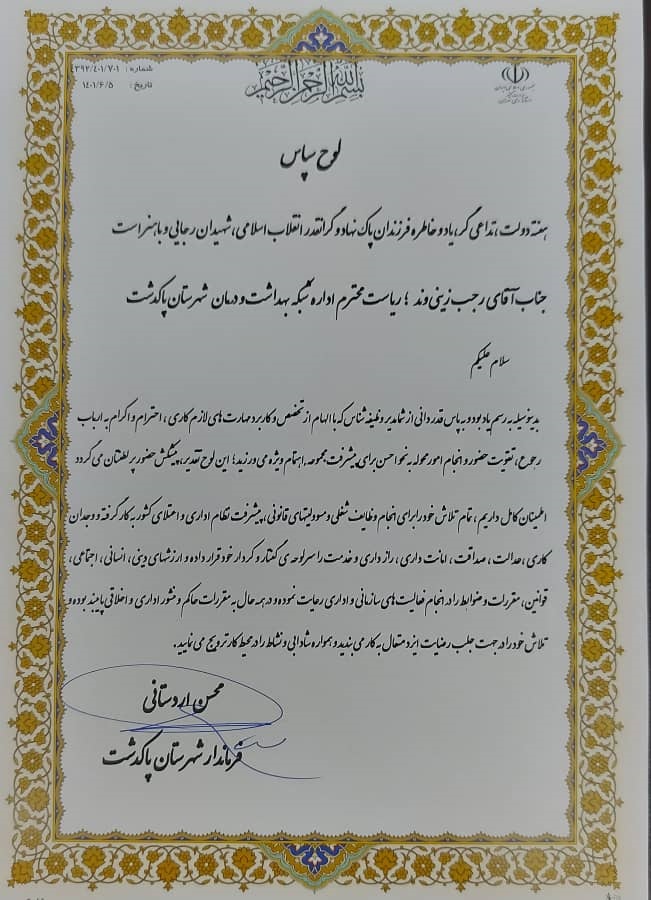 بسم الله الرحمن الرحیم
شماره : ۴۳۹۲/۴۰۱/۷۰۱
تاریخ : ۱۴۰۱/۶/۵
لوح سپاس
هفته دولت، تداعی گر، یاد و خاطره فرزندان پاک نهاد و گرانقدر انقلاب اسلامی، شهیدان رجایی و باهنر است
جناب آقای رجب زینی وند ؛ ریاست محترم اداره شبکه بهداشت و درمان شهرستان پاکدشت
سلام علیکم
بدینوسیله به رسم یادبود و به پاس قدردانی از شما مدیر وظیفه شناس که با الهام از تخصص و کاربرد مهارت های لازم کاری ، احترام و اکرام به ارباب
رجوع، تقویت حضور و انجام امور محوله به نحو احسن برای پیشرفت مجموعه، اهتمام ویژه می ورزید؛ این لوح تقدیر، پیشکش حضور پر لطفتان می گردد
اطمینان کامل داریم ، تمام تلاش خود را برای انجام وظایف شغلی و مسوولیتهای قانونی، پیشرفت نظام اداری و اعتلای کشور به کار گرفته و وجدان
کاری، عدالت ، صداقت ، امانت داری ، رازداری و خدمت را سرلوحه ی گفتار و کردار خود قرار داده و ارزشهای دینی، انسانی ، اجتماعی ،
قوانین، مقررات و ضوابط را در انجام فعالیت های سازمانی و اداری رعایت نموده و در همه حال به مقررات حاکم و منشور اداری و اخلاقی پایبند بوده و
تلاش خود را در جهت جلب رضایت ایزد متعال به کار می بندید و همواره شادابی و نشاط را در محیط کار ترویج می نمایید.
محسن اردستانی
فرماندار شهرستان پاکدشت